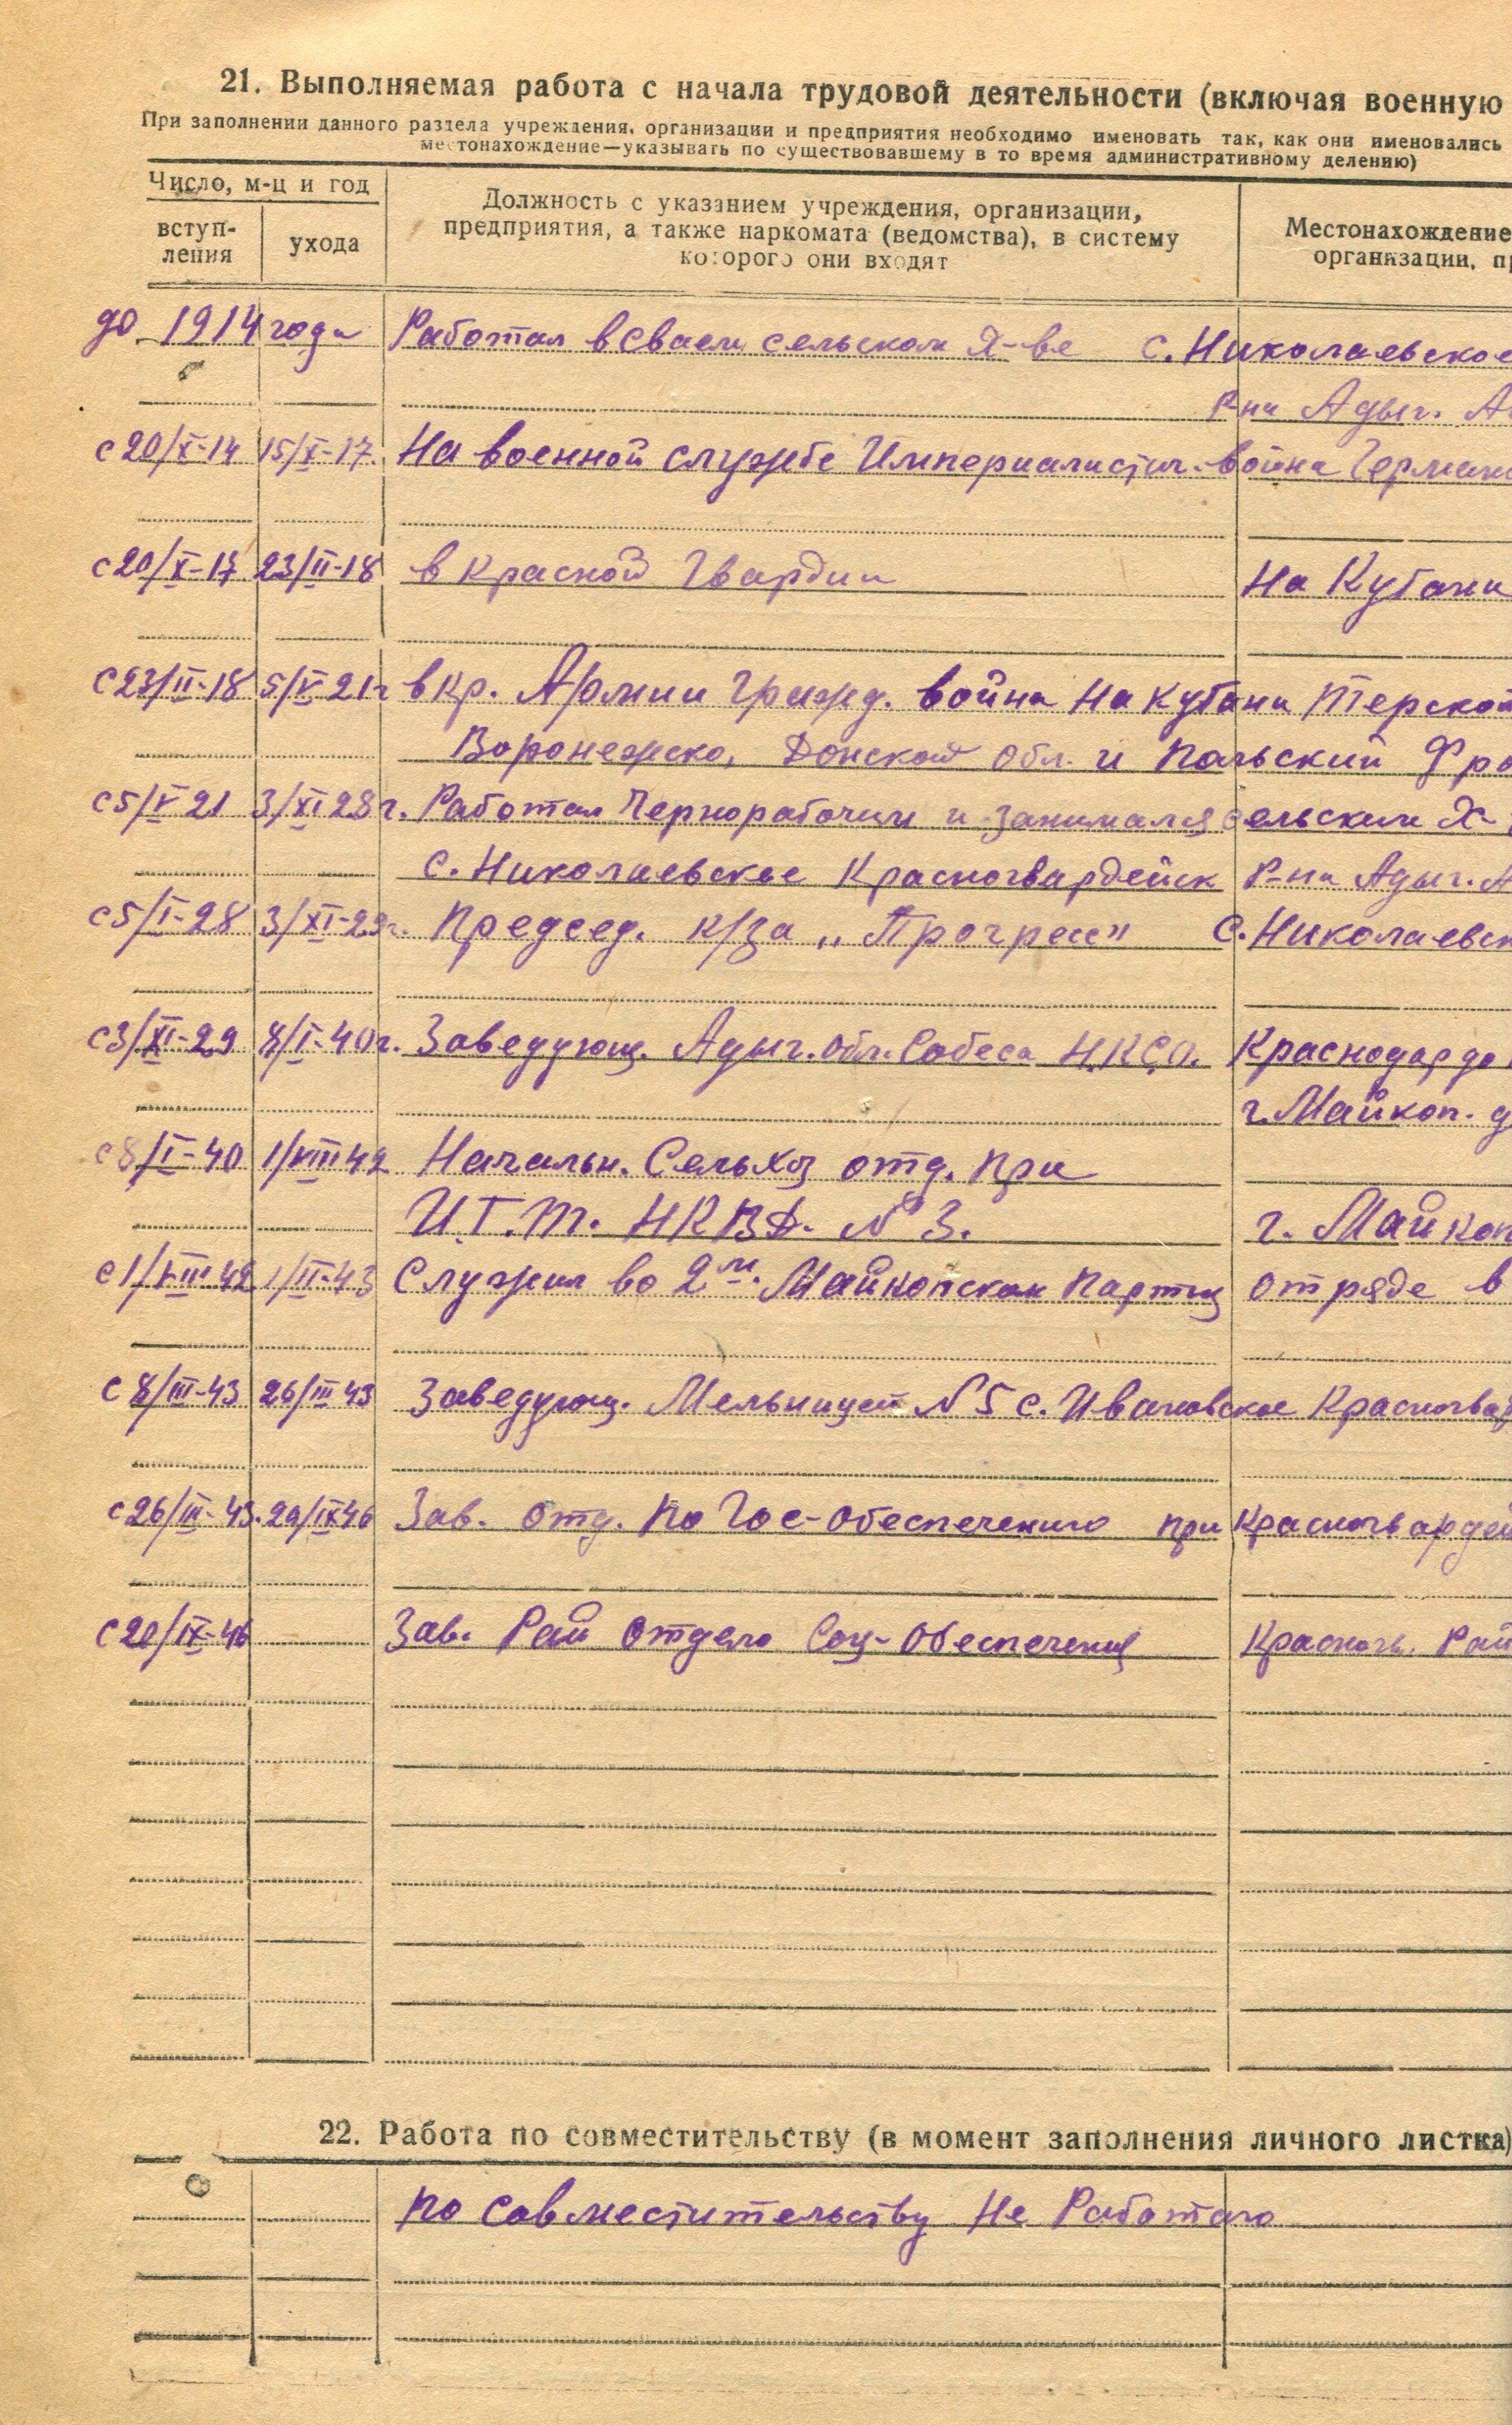 21. Выполняемая работа с начала трудовой деятельности (включая военную
При заполнении данного раздела учреждения, организации и предприятия необходимо именовать так, как они именовались
местонахождение—указывать по существовавшему в то время административному делению)
Число, м-ц и год
вступ-
ления
ухода
Должность с указанием учреждения, организации,
предприятия, а также наркомата (ведомства), в систему
которого они входят
Местонахождение
организации, пр
до 1914 года Работал в сваем сельском Х-ве с. Николаевское
Р-на Адыг. А
с 20/X-14 15/X-17. На военной службе Империалистич. война Герман
с 20/X-17 23/II-18 в Красной Гвардии На Кубани
с 23/II-18 5/V 21г в Кр. Армии Гражд. война На Кубани Терской
Воронежско, Донской обл. и Польский Фро
с 5/V 21 3/XI 28г. Работал Чернорабочим и занимался сельским Х-
с. Николаевское Красногвардейск Р-на Адыг. А
с 5/I-28 3/XI-29г. Председ. к/за „Прогрес" С. Николаевск
с 3/XI-29 8/I-40г. Заведующ. Адыг. Обл. Собеса Н.К.С.О. Краснодар до
г. Майкоп. д
с 8/I-40 1/VIII 42 Начальн. Сельхоз отд. при
И.Т.Т. НКВД. № 3. г. Майкоп
с 1/VIII 42 1/II-43 Служил во 2м. Майкопском Партиз отряде в
с 8/III-43 26/III 43 Заведующ. Мельницей № 5 с. Ивановское Красногвар
с 26/III-43. 20/IX 46 Зав. отд. По Гос-обеспечению при Красногвардей
с 20/IX-46 Зав. Рай отдела Соц-обеспечения Красногв. Рай
22. Работа по совместительству (в момент заполнения личного листка)
По совместительству Не Работаю